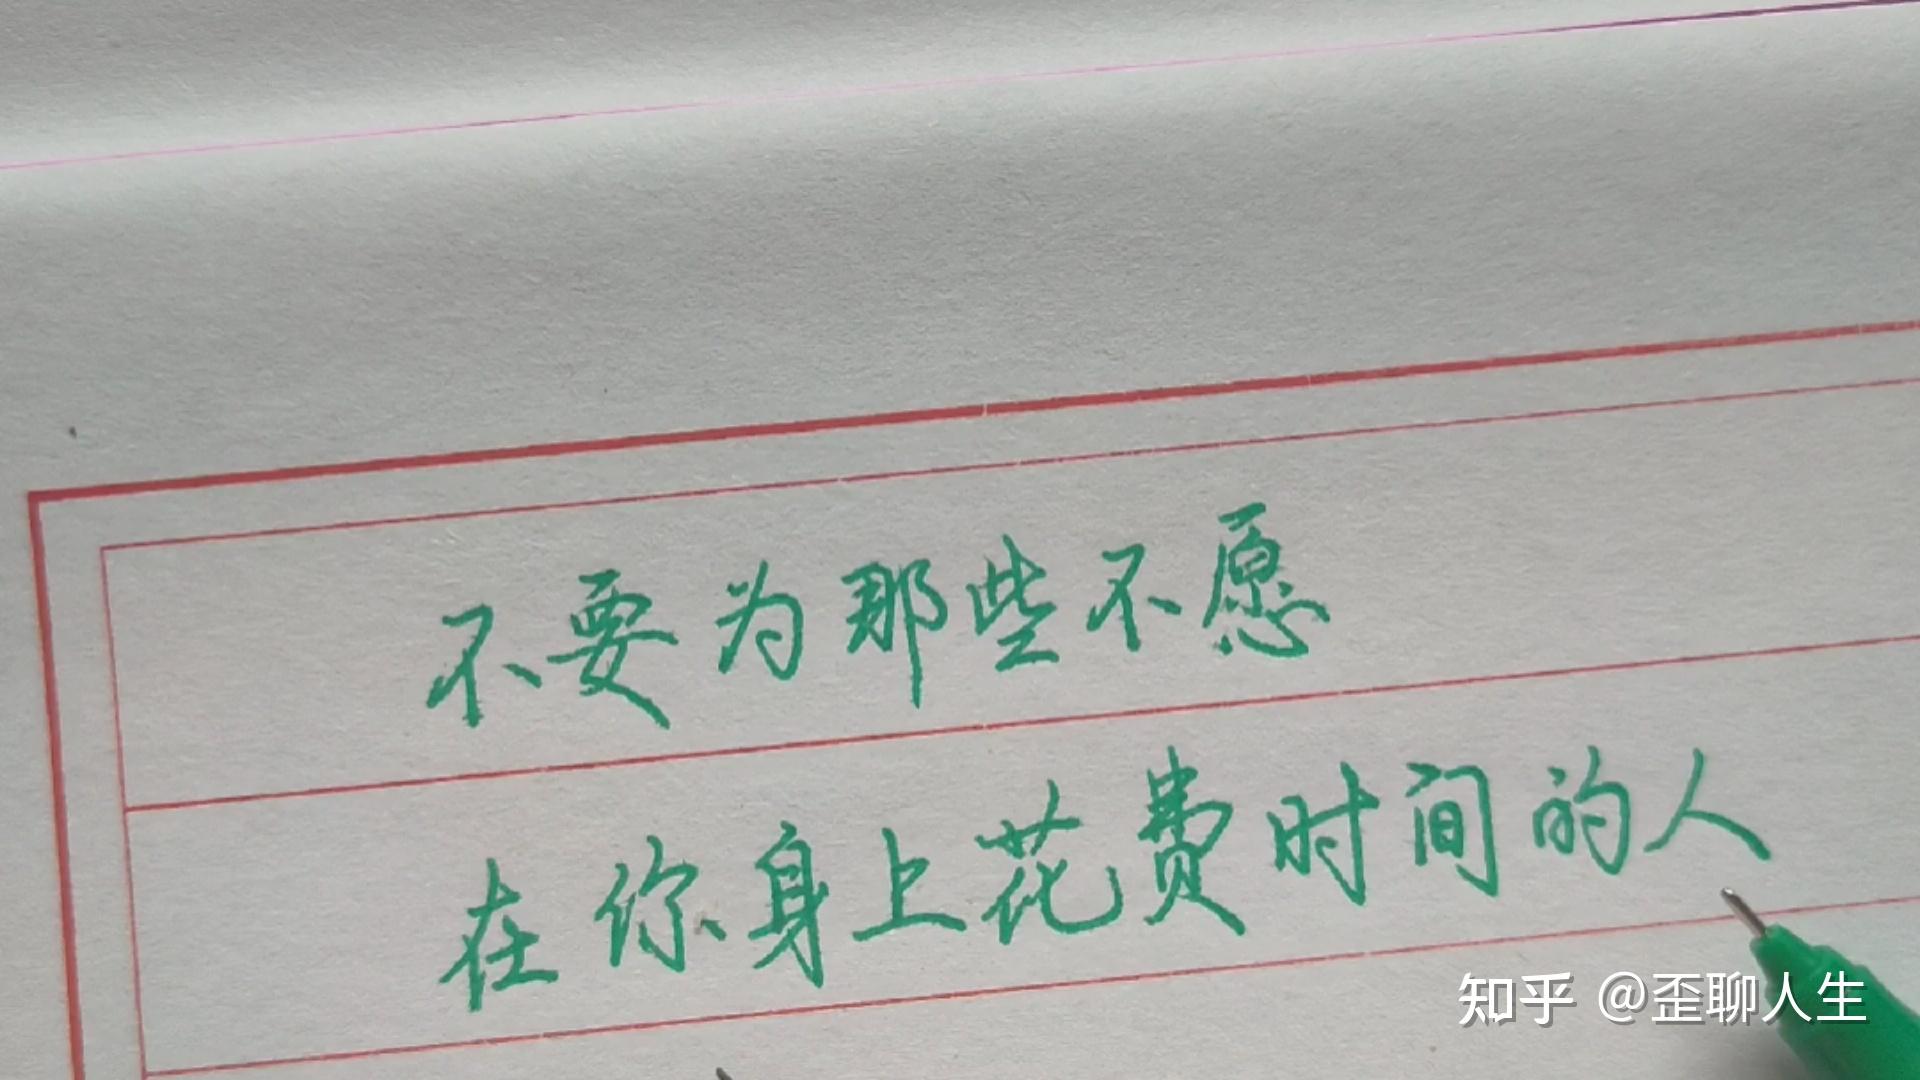 不要为那些不愿
在你身上花费时间的人
知乎 @歪聊人生